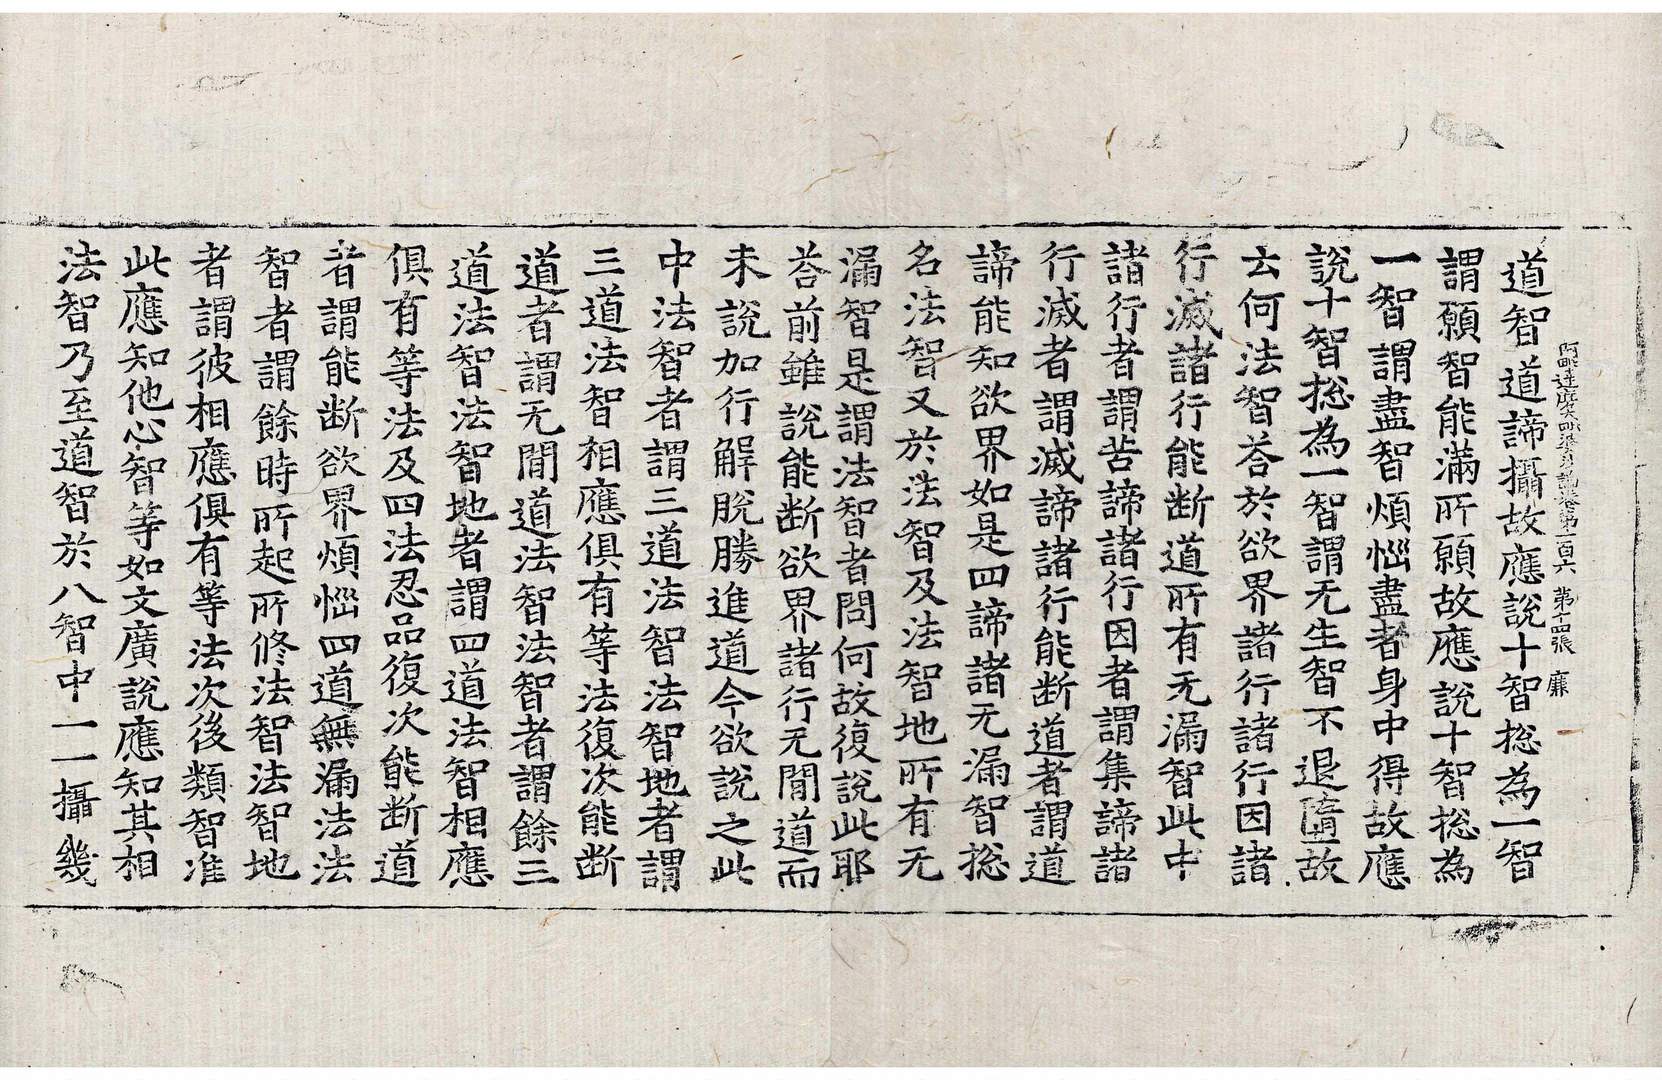 阿毗達磨大毗婆沙論卷第一百六 第十四張 廉
道智道諦攝故應說十智捴為一智
謂願智能滿所願故應說十智捴為
一智謂盡智煩惱盡者身中得故應
說十智捴為一智謂无生智不退墮故
云何法智荅於欲界諸行諸行因諸
行滅諸行能断道所有无漏智此中
諸行者謂苦諦諸行因者謂集諦諸
行滅者謂滅諦諸行能断道者謂道
諦能知欲界如是四諦諸无漏智捴
名法智又於法智及法智地所有无
漏智是謂法智者問何故復說此耶
荅前雖說能断欲界諸行无間道而
未說加行解脫勝進道今欲說之此
中法智者謂三道法智法智地者謂
三道法智相應俱有等法復次能断
道者謂无間道法智法智者謂餘三
道法智法智地者謂四道法智相應
俱有等法及四法忍品復次能断道
者謂能断欲界煩惱四道無漏法法
智者謂餘時所起所修法智法智地
者謂彼相應俱有等法次後類智准
此應知他心智等如文廣說應知其相
法智乃至道智於八智中一一攝幾